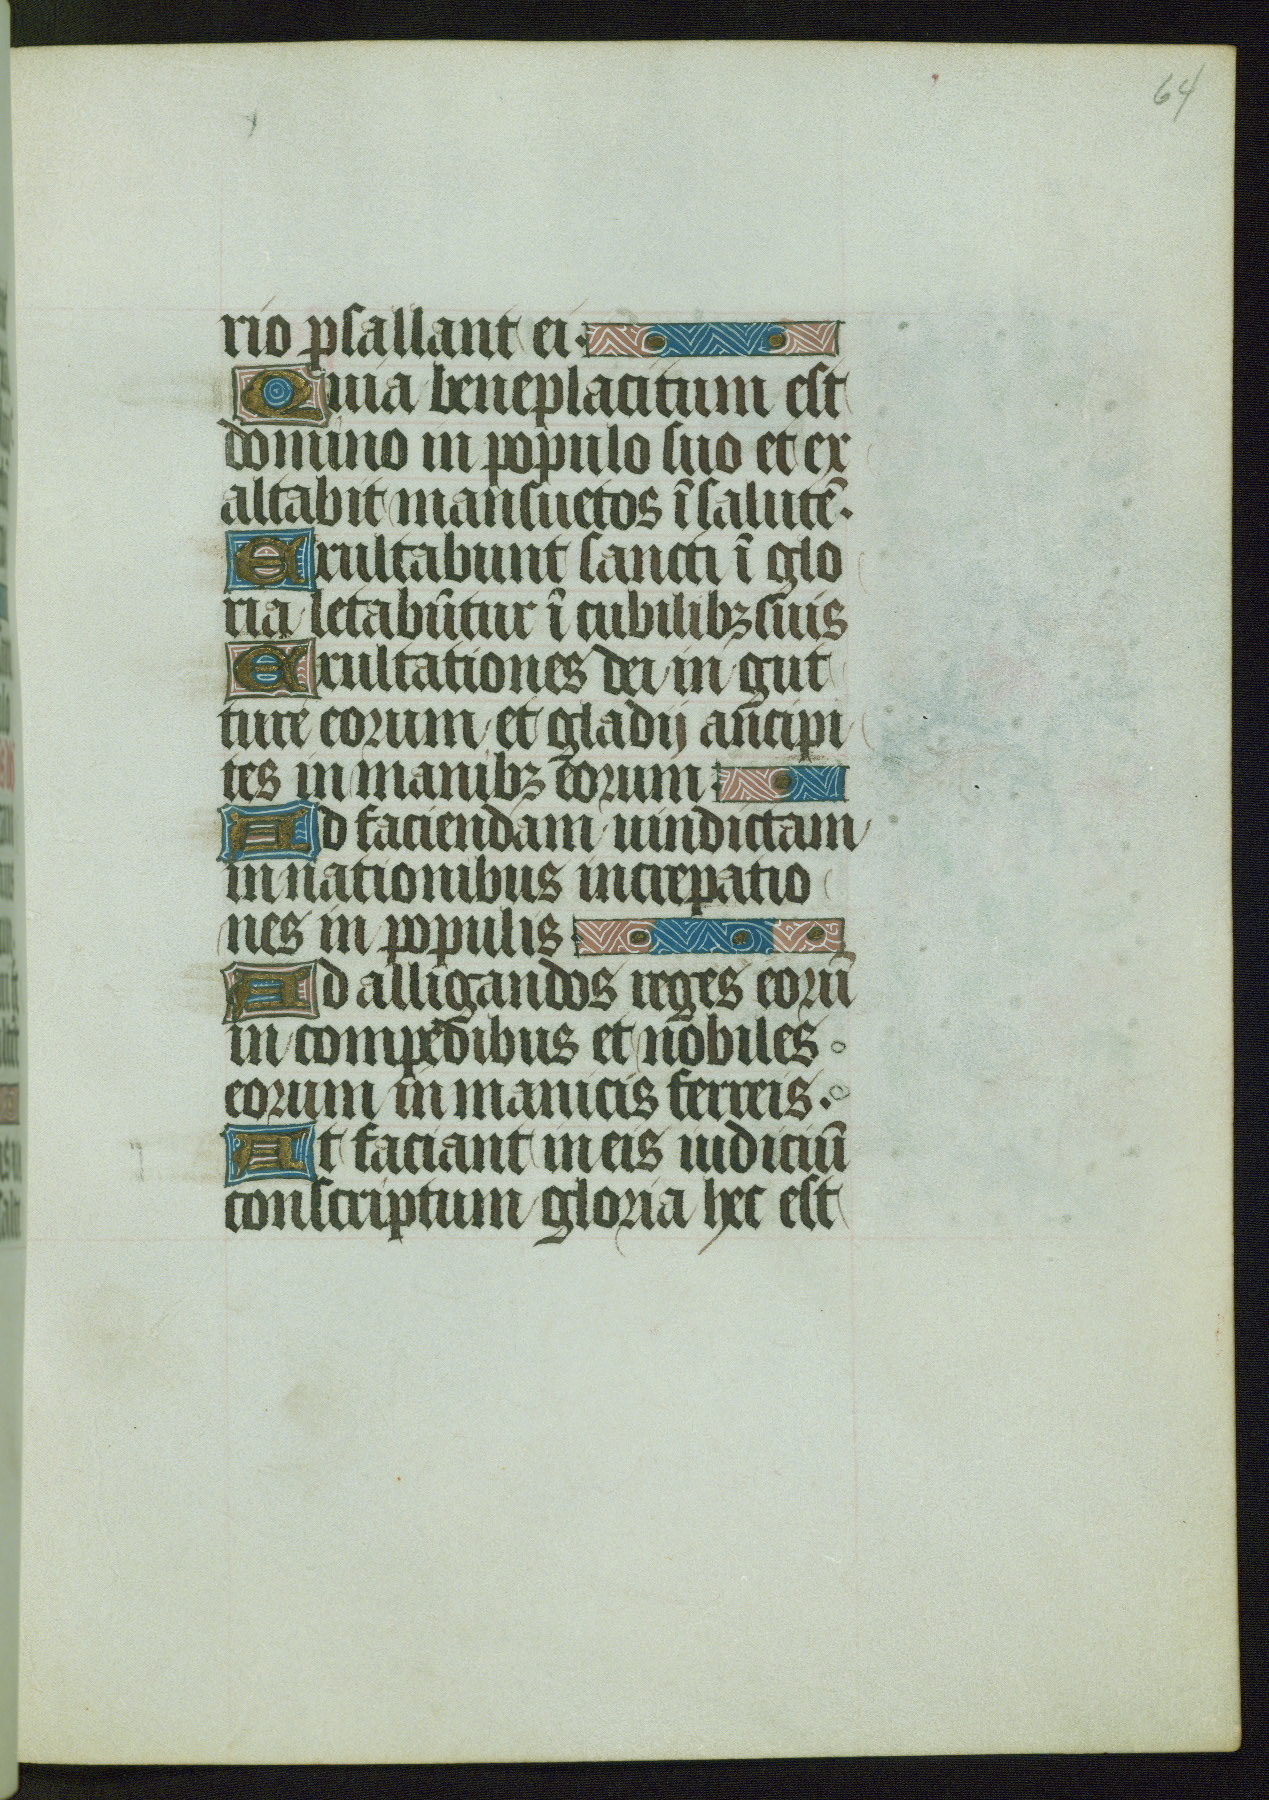 64
rio psallant ei.
Quia beneplacitum est
domino in populo suo et ex
altabit mansuetos ī salutē.
Exultabunt sancti ī glo
ria letabūtur ī cubilibꝫ suis
Exultationes dei in gut
ture eorum et gladij ancipi
tes in manibꝫ eorum
Ad faciendam uindictam
in nationibus increpatio
nes in populis
Ad alligandos reges eorū
in compedibus et nobiles
eorum in manicis ferreis.
At faciant in eis iudiciū
conscriptum gloria hec est